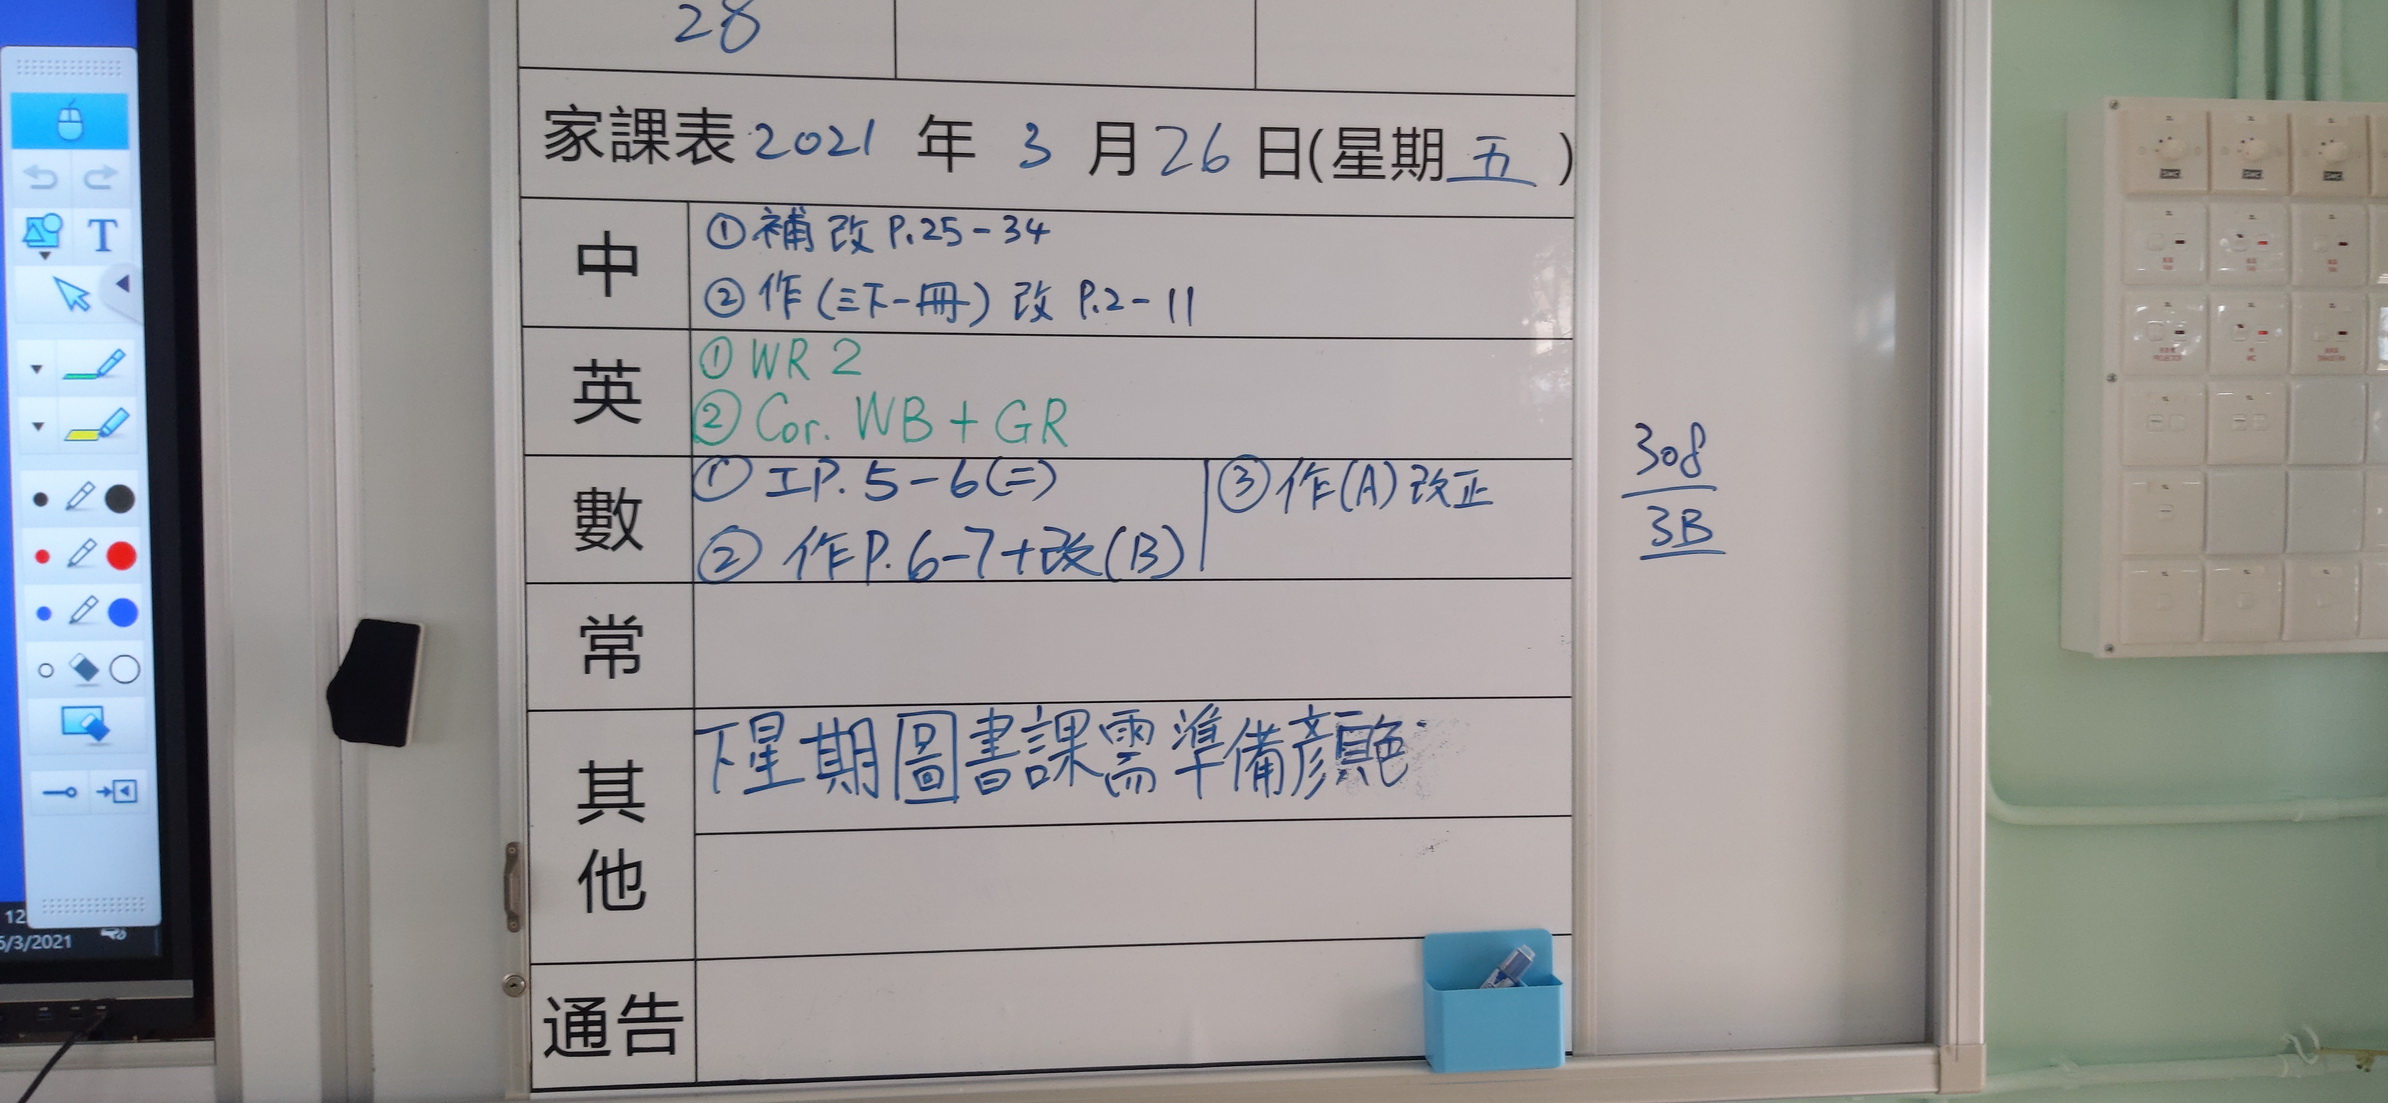 28
家課表 2021 年 3 月 26 日(星期 五 )
中
① 補 改 P.25-34
② 作 (三下一冊) 改 P.2-11
英
① WR 2
② Cor. WB + GR
數
① 工P. 5-6(二)
② 作P. 6-7+改(B)
③ 作(A) 改正
常
其他
下星期圖書課需準備顏色
通告
308
3B
T
12
6/3/2021